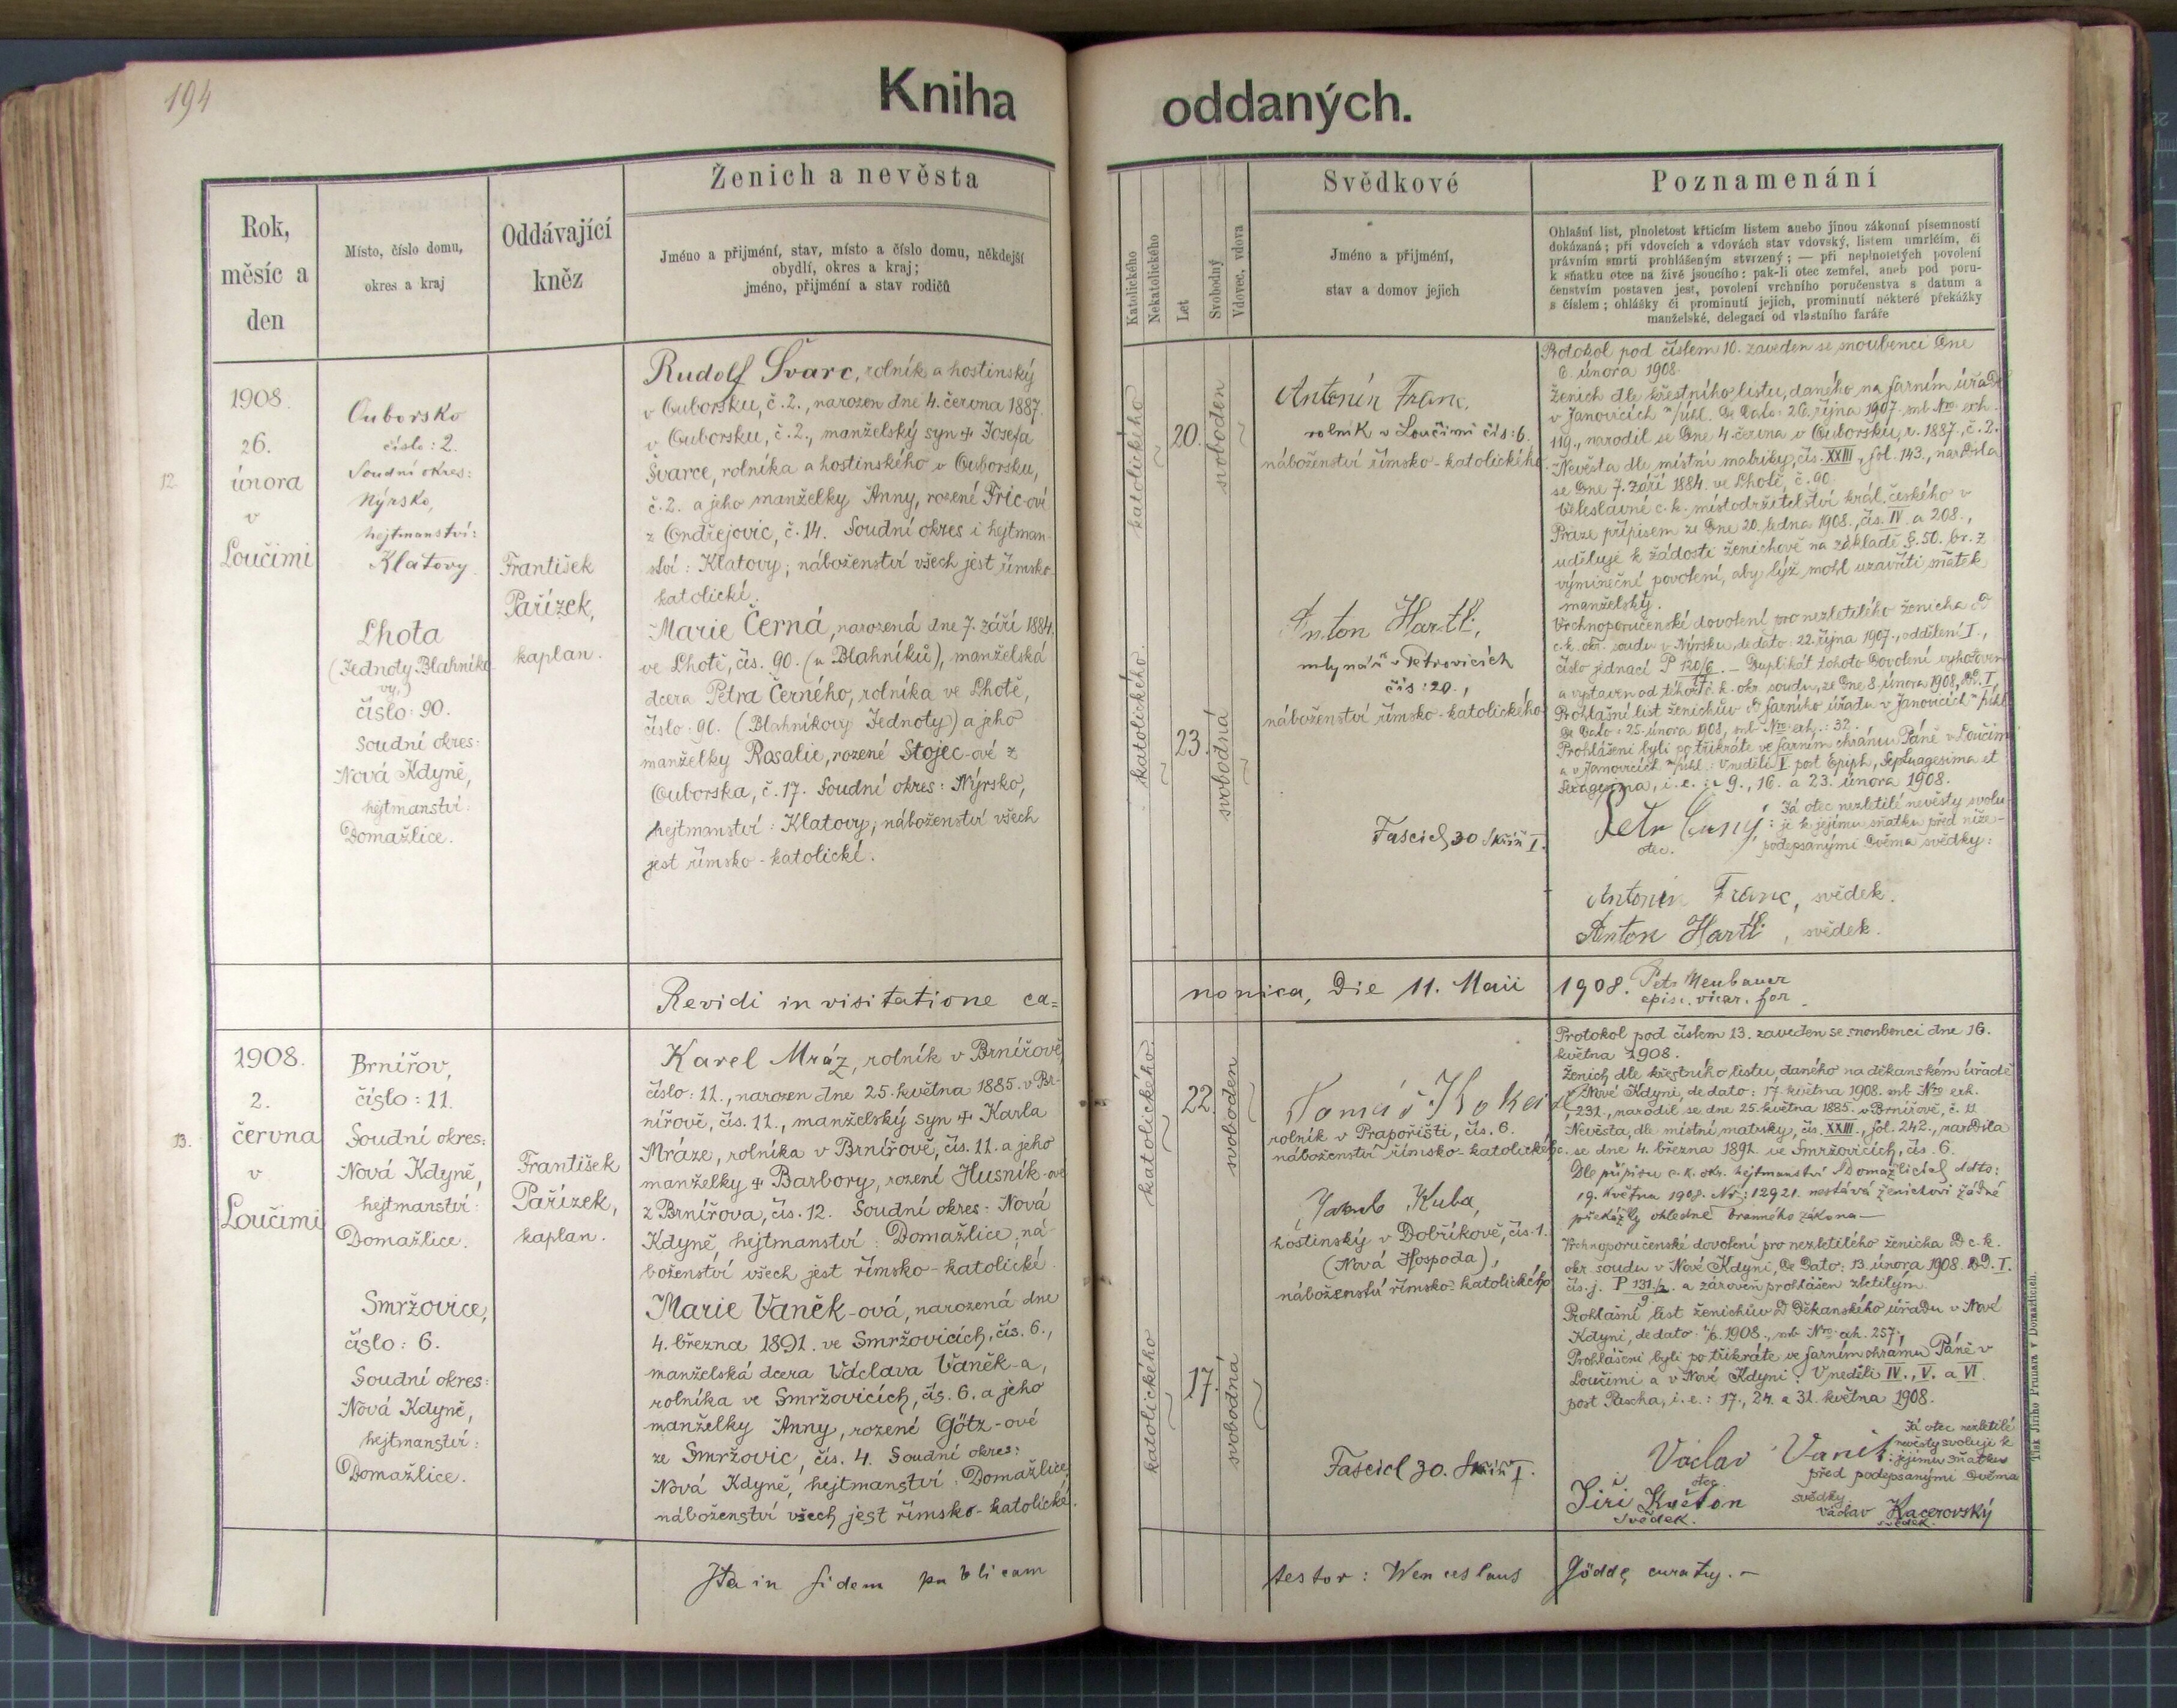 194
Kniha oddaných.
Rok,
měsíc a
den
Místo, číslo domu,
okres a kraj
Oddávající
kněz
Ženich a nevěsta
Jméno a přijmění, stav, místo a číslo domu, někdejší
obydlí, okres a kraj;
jméno, přijmění a stav rodičů
Katolického
Nekatolického
Let
Svobodný
Vdovec, vdova
Svědkové
Jméno a přijmění,
stav a domov jejich
Poznamenání
Ohlašní list, plnoletost křticím listem anebo jinou zákonní písemností
dokázaná; při vdovcích a vdovách stav vdovský, listem umrlčím, či
právním smrti prohlášeným stvrzený; — při neplnoletých povolení
k sňatku otce na živě jsoucího: pak-li otec zemřel, aneb pod poru-
čenstvím postaven jest, povolení vrchního poručenstva s datum a
s číslem; ohlášky či prominutí jejich, prominutí některé překážky
manželské, delegací od vlastního faráře
12
1908.
26.
února
v
Loučimi
Ouborsko
číslo: 2.
Soudní okres:
Nýrsko,
hejtmanství:
Klatovy
Lhota
(Jednoty Blahníko
vy,)
číslo: 90.
Soudní okres:
Nová Kdyně,
hejtmanství:
Domažlice.
František
Pařízek,
kaplan.
Rudolf Švarc, rolník a hostinský
v Ouborsku, č. 2., narozen dne 4. června 1887.
v Ouborsku, č. 2., manželský syn + Josefa
Švarce, rolníka a hostinského v Ouborsku,
č. 2. a jeho manželky Anny, rozené Fric-ové
z Ondřejovic, č. 14. Soudní okres i hejtman-
ství: Klatovy; náboženství všech jest římsko-
katolické.
Marie Černá, narozená dne 7. září 1884.
ve Lhotě, čís. 90. (u Blahníků), manželská
dcera Petra Černého, rolníka ve Lhotě,
číslo: 90. (Blahníkovy Jednoty) a jeho
manželky Rosalie, rozené Stojec-ové z
Ouborska, č. 17. Soudní okres: Nýrsko,
hejtmanství: Klatovy; náboženství všech
jest římsko-katolické.
katolického
20.
svoboden
katolického
23.
svobodná
Antonín Franc,
rolník v Loučimi čís: 6.
náboženství římsko-katolického
Anton Hartl,
mlynář v Petrovicích
čís: 20.,
náboženství římsko-katolického
Fascicl 30 skříň I.
Protokol pod číslem 10. zaveden se snoubenci dne
6. února 1908.
Ženich dle křestního listu, daného na farním úřadě
v Janovicích n/úhl. de dato: 26. října 1907. sub Nro. exh.
119., narodil se dne 4. června v Ouborsku, r. 1887., č. 2.
Nevěsta dle místní matriky, čís. XXIII., fol. 143., narodila
se dne 7. září 1884. ve Lhotě, č. 90.
Veleslavné c. k. místodržitelství král. českého v
Praze přípisem ze dne 20. ledna 1908., čís. IV. a 208.,
uděluje k žádosti ženichově na základě §. 50. br. z.
výmineční povolení, aby týž mohl uzavříti sňatek
manželský.
Vrchnoporučenské dovolení pro nezletilého ženicha od
c. k. okr. soudu v Nýrsku, de dato: 22. října 1907., oddělení I.,
číslo jednací P 120/6/17. — Duplikát tohoto dovolení vyhotoven
a vystaven od téhož c. k. okr. soudu, ze dne 8. února 1908, od. I.
Prohlašní list ženichův od farního úřadu v Janovicích n/úhl.
de dato: 25. února 1908, sub Nro exh.: 32.
Prohlášeni byli po třikráte ve farním chrámu Páně v Loučimi
a v Janovicích n/úhl.: V neděli V. post Epiph, Septuagesima et
Sexagesima, i. e.: 9., 16. a 23. února 1908.
Já otec nezletilé nevěsty svolu-
Petr Černý: ji k jejímu sňatku před níže-
otec. podepsanými dvěma svědky:
Antonín Franc, svědek.
Anton Hartl, svědek.
Revidi in visitatione ca= nonica, Die 11. Maii 1908. Petr Neubauer
episc. vicar. for.
13.
1908.
2.
června
v
Loučimi
Brnířov,
číslo: 11.
Soudní okres:
Nová Kdyně,
hejtmanství:
Domažlice.
Smržovice,
číslo: 6.
Soudní okres:
Nová Kdyně,
hejtmanství:
Domažlice.
František
Pařízek,
kaplan.
Karel Mráz, rolník v Brnířově,
číslo: 11., narozen dne 25. května 1885. v Br-
nířově, čís. 11., manželský syn + Karla
Mráze, rolníka v Brnířově, čís. 11. a jeho
manželky + Barbory, rozené Husník-ové
z Brnířova, čís. 12. Soudní okres: Nová
Kdyně, hejtmanství: Domažlice; ná-
boženství všech jest římsko-katolické.
Marie Vaněk-ová, narozená dne
4. března 1891. ve Smržovicích, čís. 6.,
manželská dcera Václava Vaněk-a,
rolníka ve Smržovicích, čís. 6. a jeho
manželky Anny, rozené Götz-ové
ze Smržovic, čís. 4. Soudní okres:
Nová Kdyně, hejtmanství: Domažlice,
náboženství všech jest římsko-katolické.
katolického
22.
svoboden
katolického
17.
svobodná
Tomáš
rolník v Prapořišti, čís. 6.
náboženství římsko-katolického.
Jakub Kuba,
hostinský v Dobříkově, čís. 1.
(Nová Hospoda),
náboženství římsko-katolického
Fascicl 30. skříň I.
Protokol pod číslem 13. zaveden se snoubenci dne 16.
května 1908.
Ženich dle křestního listu, daného na děkanském úřadě
v Nové Kdyni, de dato: 17. května 1908. sub Nro exh.
231., narodil se dne 25. května 1885. v Brnířově, č. 11
Nevěsta, dle místní matriky, čís. XXIII., fol. 242., narodila
se dne 4. března 1891. ve Smržovicích, čís. 6.
Dle přípisu c. k. okr. hejtmanství v Domažlicích ddto:
19. května 1908. Nr: 12921. nestává ženichovi žádné
překážky ohledně branného zákona —
Vrchnoporučenské dovolení pro nezletilého ženicha od c. k.
okr. soudu v Nové Kdyni, de dato: 13. února 1908. od. I.
čís. j. P 131/2/9. a zároveň prohlášen zletilým.
Prohlašní list ženichův od děkanského úřadu v Nové
Kdyni, de dato 2/6. 1908., sub Nro. exh. 257.
Prohlášeni byli po třikráte ve farním chrámu Páně v
Loučimi a v Nové Kdyni: V neděli IV., V. a VI.
post Pascha, i. e.: 17., 24. a 31. května 1908.
Já otec nezletilé
Václav Vaněk: nevěsty svoluji k
jejímu sňatku
otec. před podepsanými dvěma
Jiří Květon svědky:
svědek. Václav Kacerovský
svědek.
Ita in fidem publicam testor: Wenceslaus Göddl, curatus. —
Tisk Jiřího Prunara v Domažlicích.